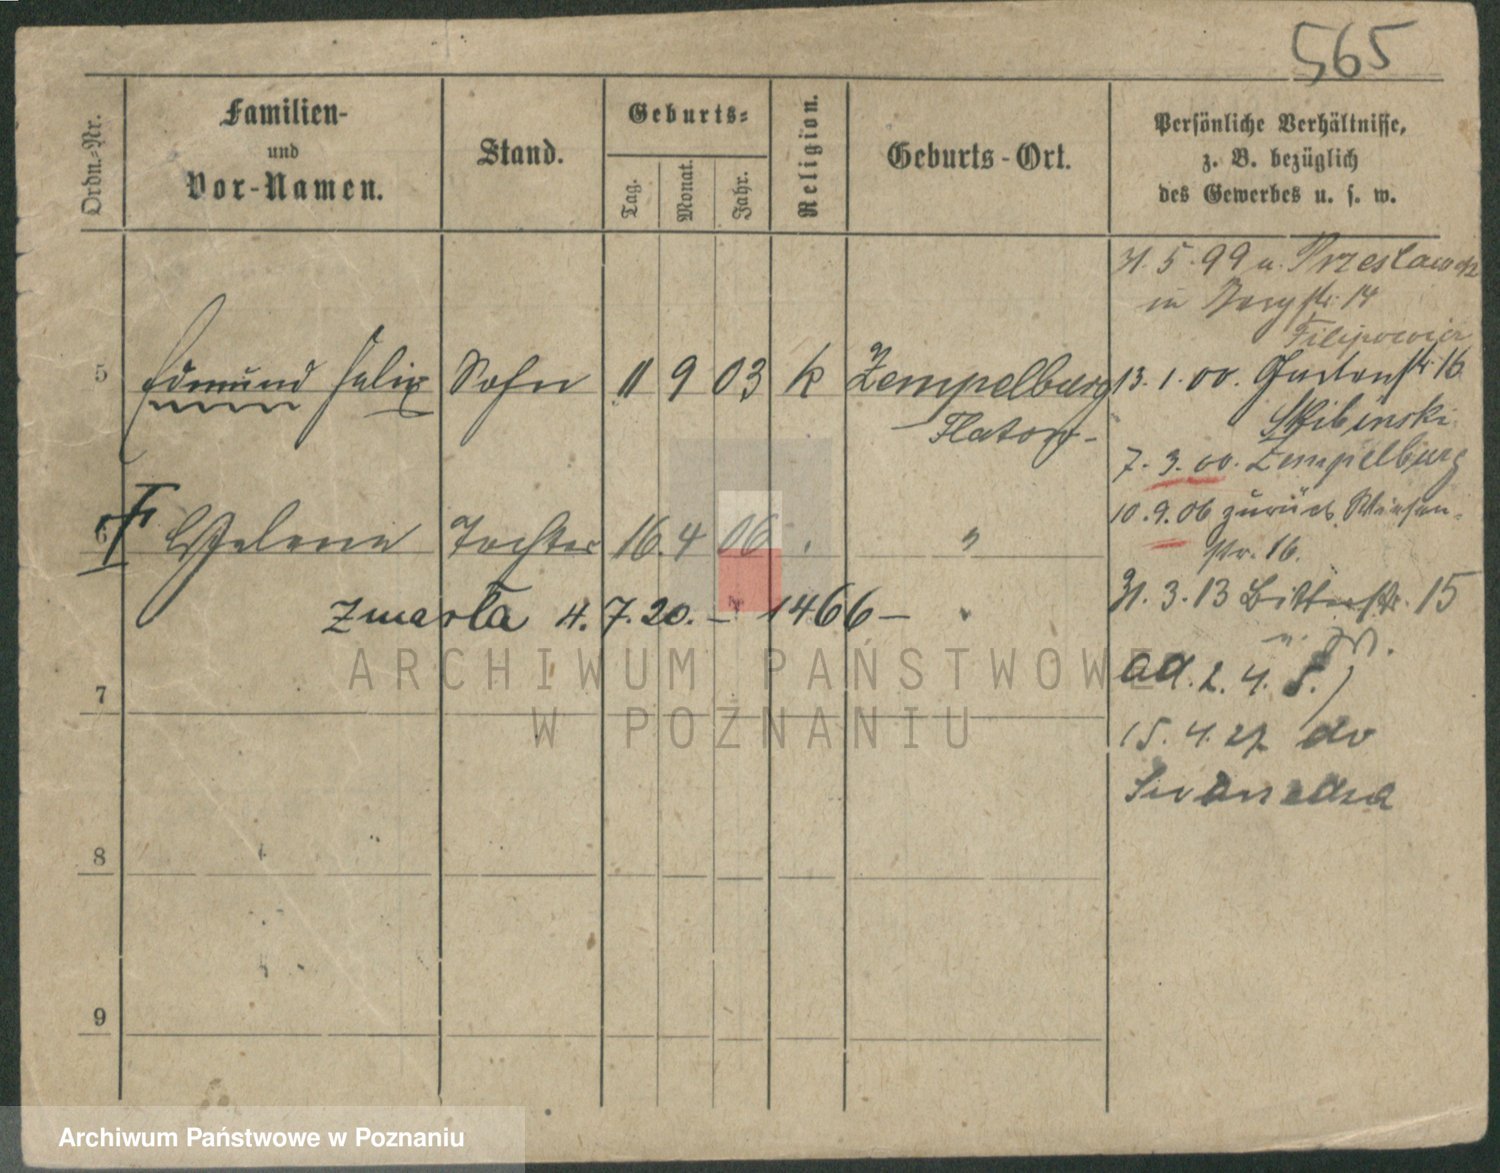 565
Ordn.-Nr.
Familien-
und
Vor-Namen.
Stand.
Geburts-
Tag.
Monat.
Jahr.
Religion.
Geburts-Ort.
Persönliche Verhältnisse,
z. B. bezüglich
des Gewerbes u. s. w.
31. 5. 99 u.
in Bergstr. 14
Filipowicz
5 Edmund Felix Sohn 11 9 03 k Zempelburg
Flatow
13. 1. 00. Gartenstr. 16
Skibinski
7. 3. 00. Zempelburg
6 Helene Tochter 16. 4 06 "
10. 9. 06 zurück Wiesen-
str. 16.
Zmarła 4. 7. 20. – 1466 –
31. 3. 13 15
ad. 2. 4. 5.)
15. 4. 27 do
7
8
9
ARCHIWUM PAŃSTWOWE
W POZNANIU
Archiwum Państwowe w Poznaniu